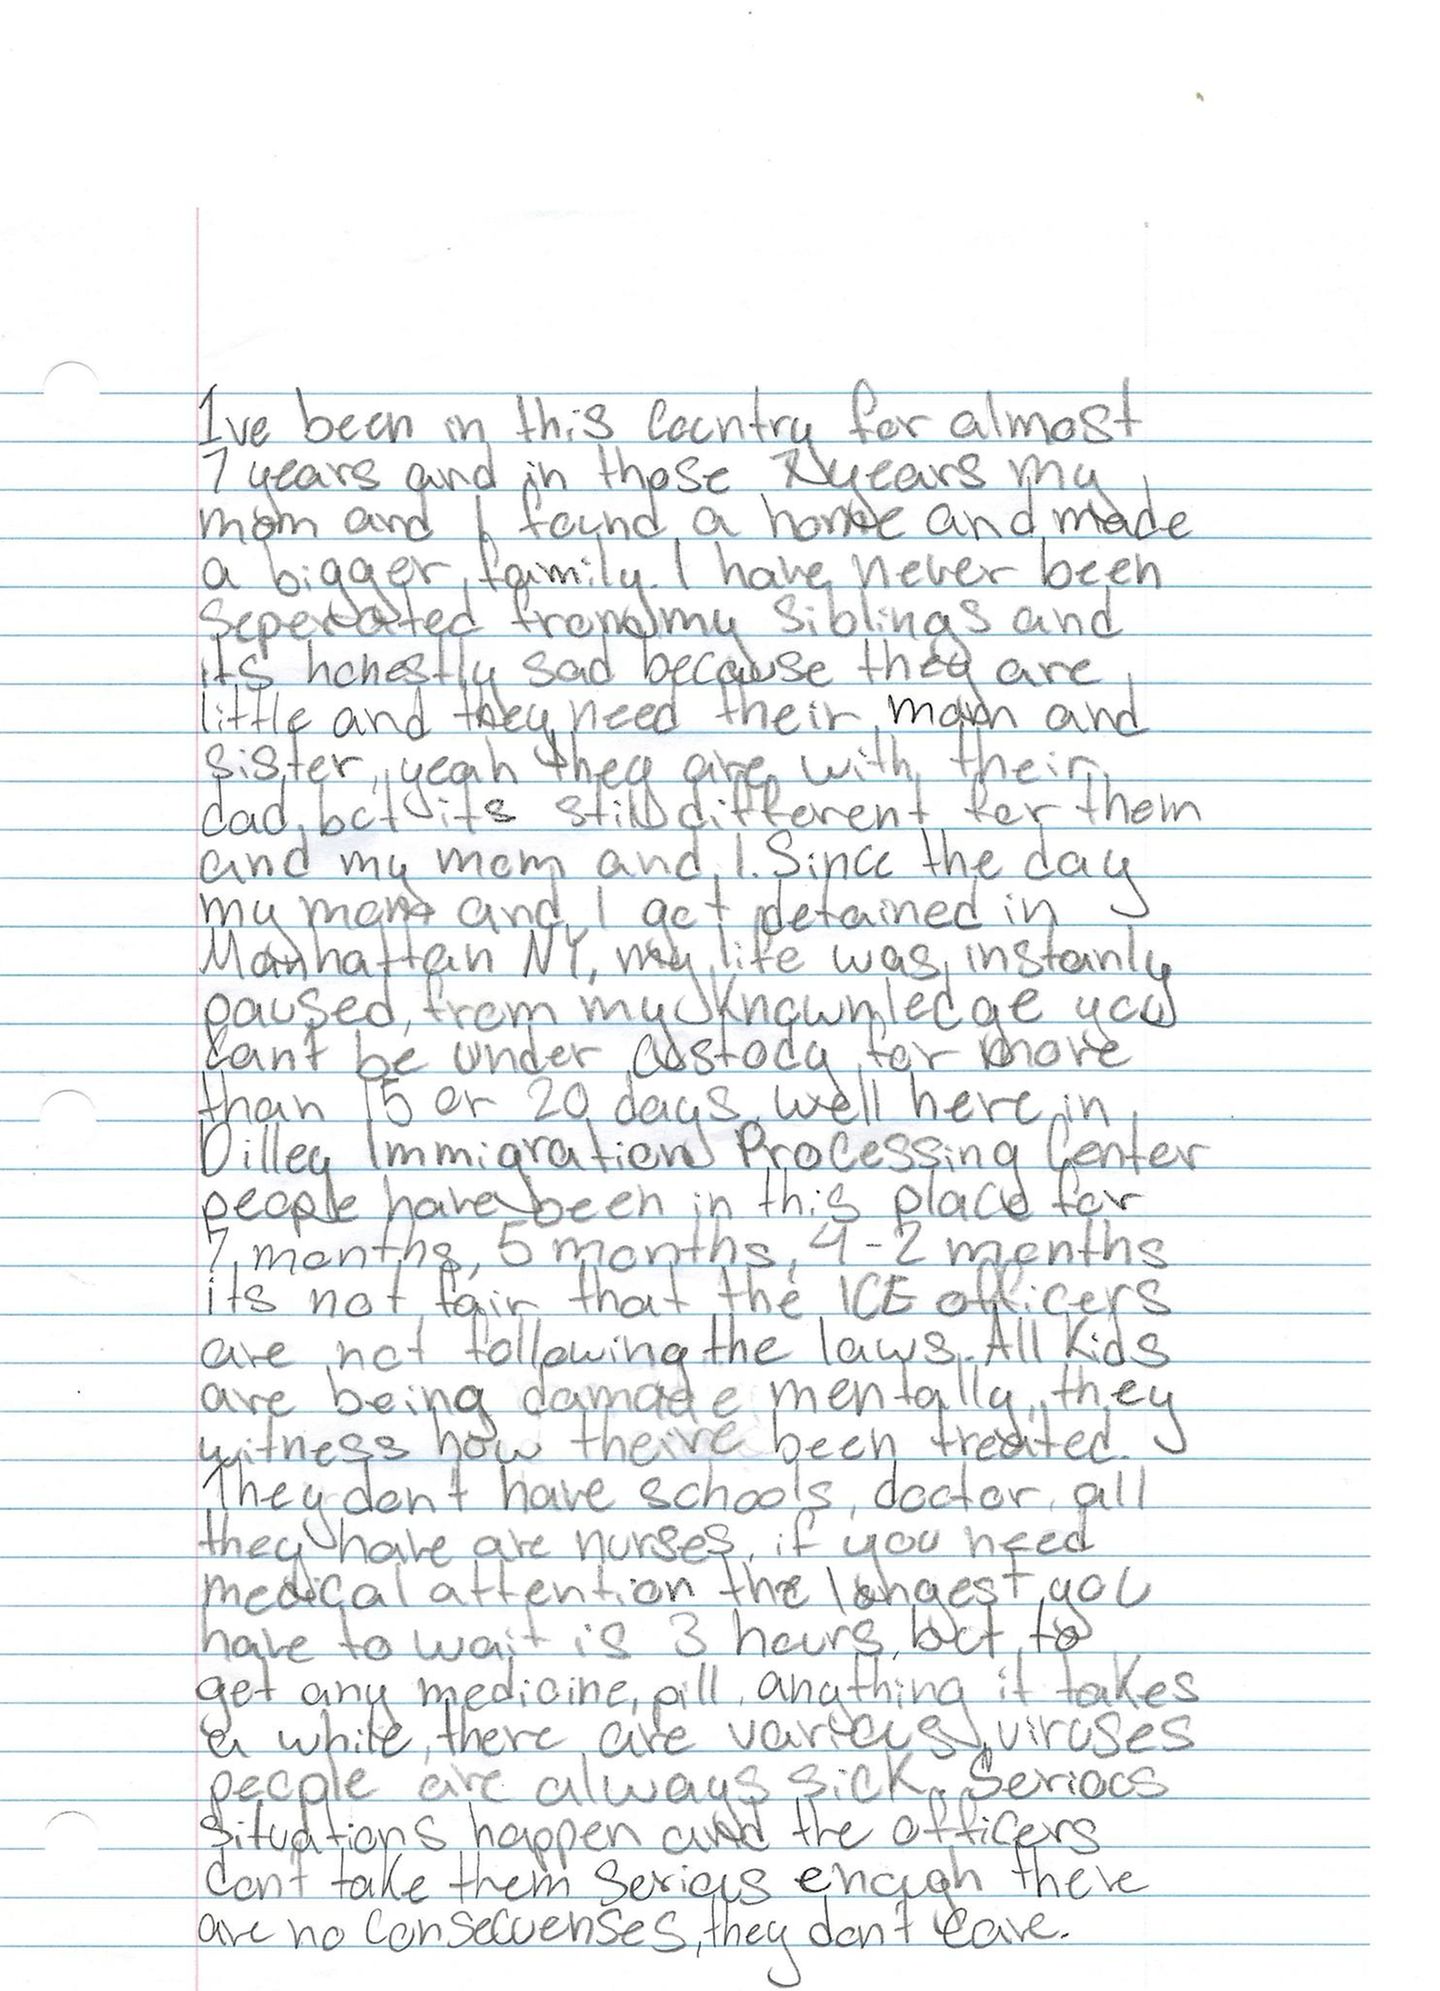 Ive been in this Country for almost
7 years and in those 7 years my
mom and I found a home and made
a bigger family. I have never been
seperated from my siblings and
its honestly sad because they are
little and they need their mom and
sister, yeah they are with their
dad, but its still different for them
and my mom and I. Since the day
my mom and I got detained in
Manhattan NY, my life was instanly
paused, from my knownledge you
cant be under custody for more
than 15 or 20 days, well here in
Dilley Immigration Processing Center
people have been in this place for
7 months, 5 months, 4-2 months
its not fair that the ICE officers
are not following the laws. All Kids
are being damage mentally, they
witness how theire been treated.
They don't have schools, doctor, all
they have are nurses, if you need
medical attention the longest you
have to wait is 3 hours, but to
get any medicine, pill, anything it takes
a while, there are various viruses
people are always sick. Serious
situations happen and the officers
dont take them serious enough there
are no consecuenses, they don't care.